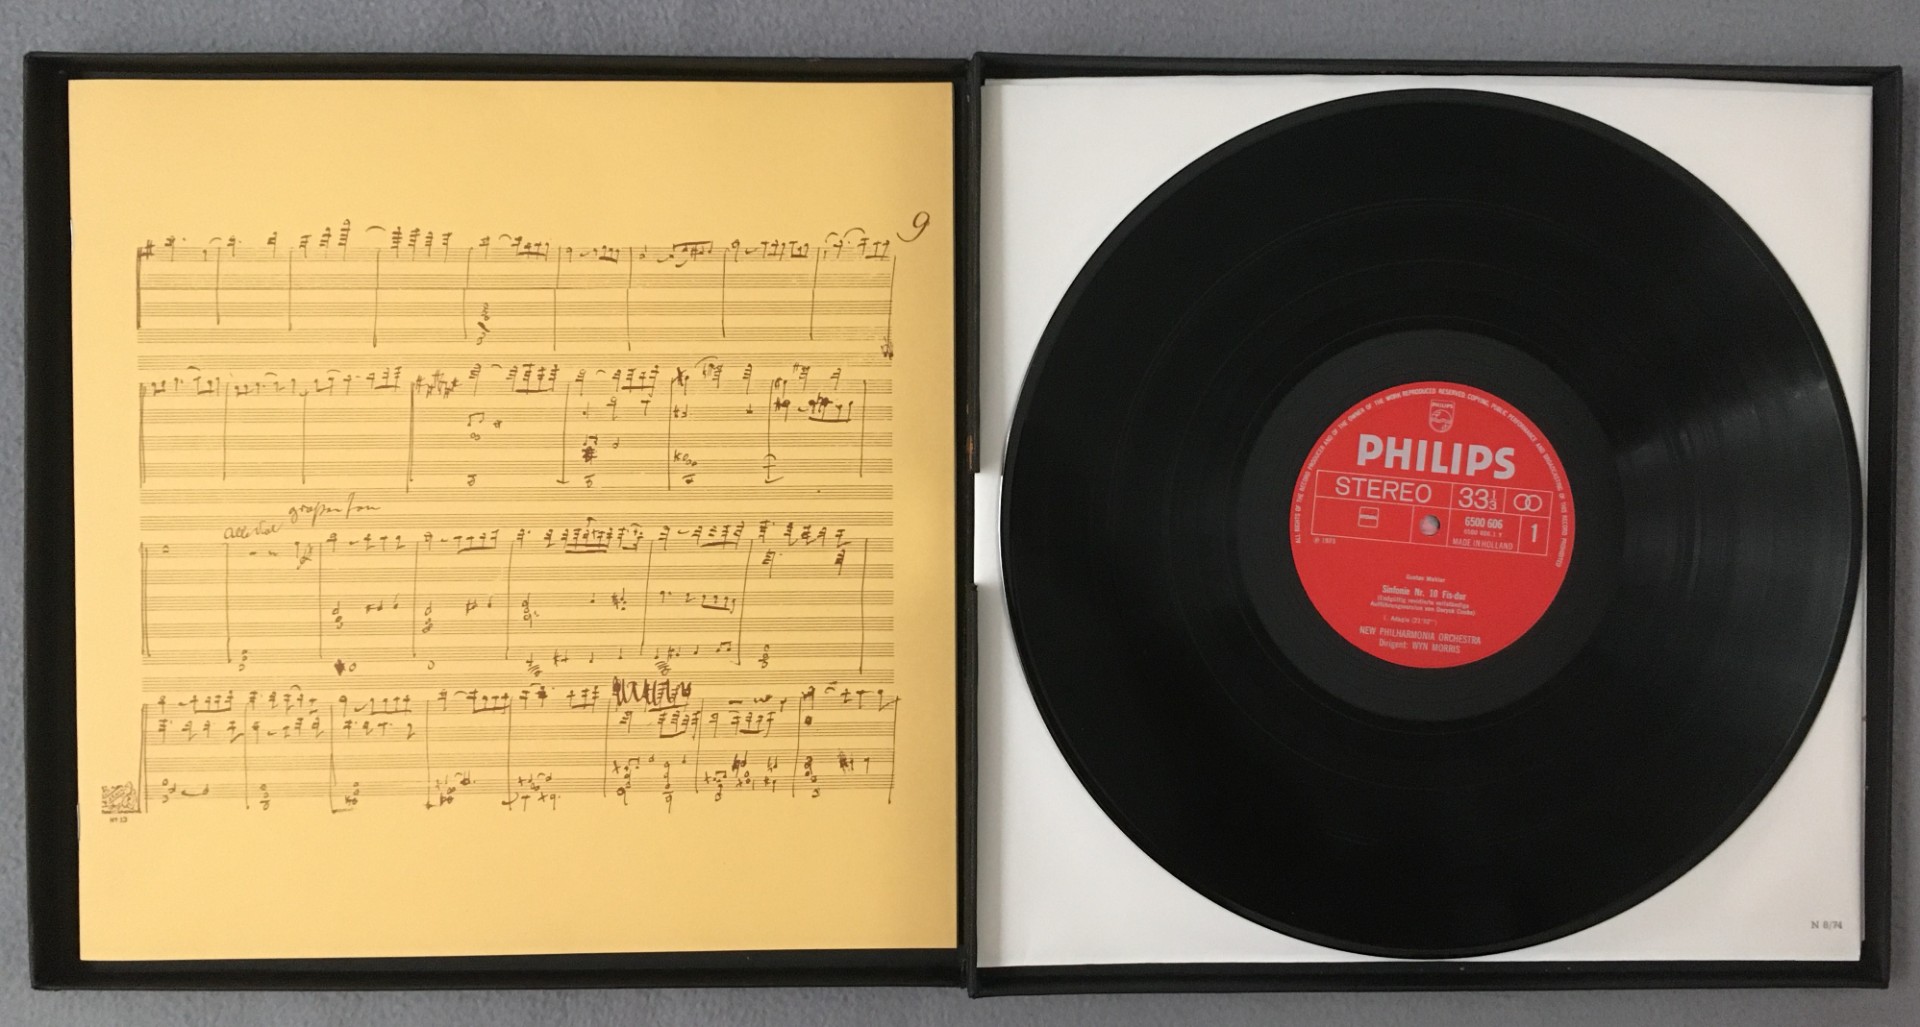 9
großen Ton
Nº 13
ALL RIGHTS OF THE RECORD PRODUCER AND OF THE OWNER OF THE WORK REPRODUCED RESERVED. COPYING, PUBLIC PERFORMANCE AND BROADCASTING OF THIS RECORD PROHIBITED
PHILIPS
PHILIPS
STEREO
33 1/3
6500 606
MADE IN HOLLAND
1
Ⓟ 1973
Gustav Mahler
Sinfonie Nr. 10 Fis-dur
(Endgültig revidierte vollständige
Aufführungsversion von Deryck Cooke)
1. Adagio
NEW PHILHARMONIA ORCHESTRA
Dirigent: WYN MORRIS
N 8/74